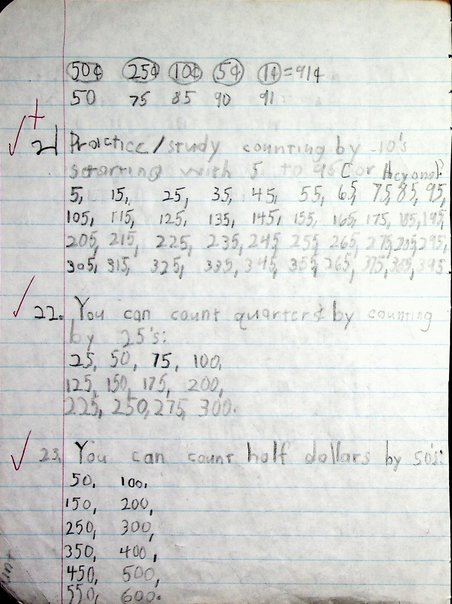 50¢ 25¢ 10¢ 5¢ 1¢ = 91¢
50 75 85 90 91
21 Practice/study counting by 10's
starting with 5 to 95 (or Beyond)
5, 15, 25, 35, 45, 55, 65, 75, 85, 95,
105, 115, 125, 135, 145, 155, 165, 175, 185, 195,
205, 215, 225, 235, 245, 255, 265, 275, 285, 295,
305, 315, 325, 335, 345, 355, 265, 375, 385, 395
22. You can count quarters by counting
by 25's:
25, 50, 75, 100,
125, 150, 175, 200,
225, 250, 275, 300.
23. You can count half dollars by 50's:
50, 100,
150, 200,
250, 300,
350, 400,
450, 500,
550, 600.